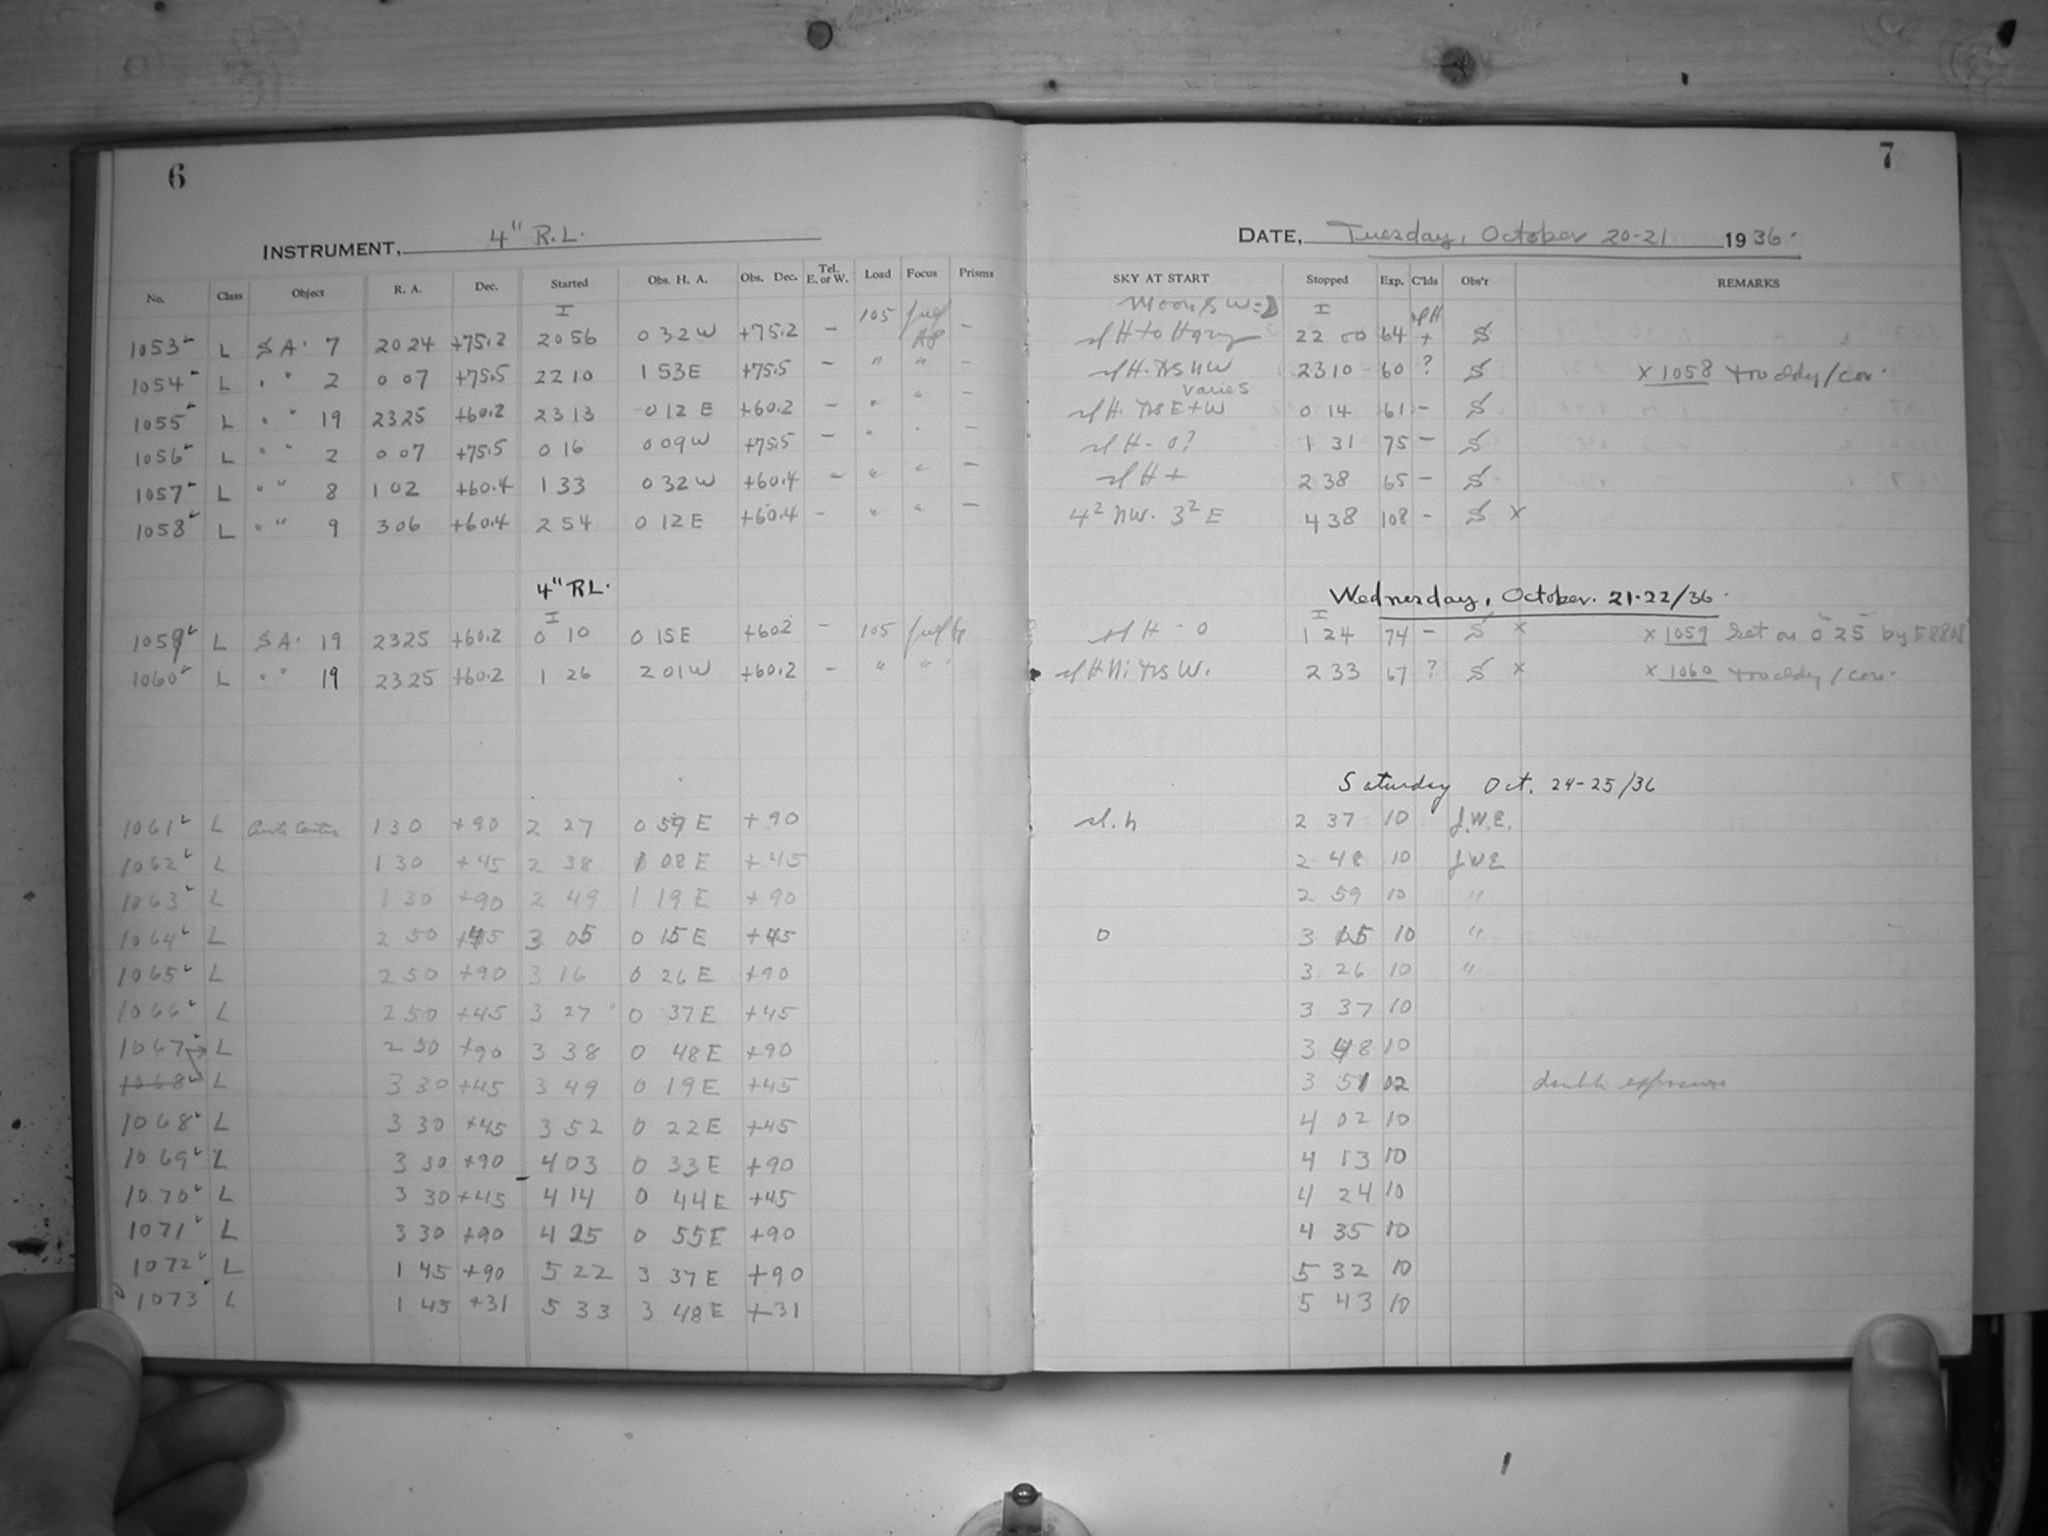 6
7
INSTRUMENT, 4" R.L.
DATE, Tuesday, October 20-21 1936.
No. Class Object R. A. Dec. Started Obs. H. A. Obs. Dec. Tel. E. or W. Load Focus Prisms SKY AT START Stopped Exp. C'lds Obs'r REMARKS
I 105 Moon I
1053 L S A. 7 2024 +75.2 20 56 0 32 W +75.2 - - sl H to Hazy 22 00 64 + S
1054 L " " 2 0 07 +75.5 22 10 1 53 E +75.5 - " " - sl H. NW 23 10 60 ? S x 1058 /cor.
varies
1055 L " " 19 2325 +60.2 23 13 0 12 E +60.2 - " " - sl H. E + W 0 14 61 - S
1056 L " " 2 0 07 +75.5 0 16 0 09 W +75.5 - " " - sl H - 0? 1 31 75 - S
1057 L " " 8 1 02 +60.4 1 33 0 32 W +60.4 - " " - sl H + 2 38 65 - S
1058 L " " 9 3 06 +60.4 2 54 0 12 E +60.4 - " " - 4² NW. 3² E 4 38 108 - S x
4" RL. Wednesday, October. 21-22/36.
I I
1059 L S A. 19 2325 +60.2 0 10 0 15 E +602 - 105 sl H - 0 1 24 74 - S x x 1059 Set on 0 25 by
1060 L " " 19 2325 +60.2 1 26 2 01 W +60.2 - " " sl H N. W. 2 33 67 ? S x x 1060 /cor.
Saturday Oct. 24-25/36
1061 L Anti Center 1 30 +90 2 27 0 59 E +90 sl. h 2 37 10 J.W.E.
1062 L 1 30 +45 2 38 1 08 E +45 2 48 10 JWE
1063 L 1 30 +90 2 49 1 19 E +90 2 59 10 "
1064 L 2 50 +45 3 05 0 15 E +45 0 3 15 10 "
1065 L 2 50 +90 3 16 0 26 E +90 3 26 10 "
1066 L 2 50 +45 3 27 0 37 E +45 3 37 10
1067 L 2 50 +90 3 38 0 48 E +90 3 48 10
1068 L 3 30 +45 3 49 0 19 E +45 3 51 02 double exposure
1068 L 3 30 +45 3 52 0 22 E +45 4 02 10
1069 L 3 30 +90 4 03 0 33 E +90 4 13 10
1070 L 3 30 +45 4 14 0 44 E +45 4 24 10
1071 L 3 30 +90 4 25 0 55 E +90 4 35 10
1072 L 1 45 +90 5 22 3 37 E +90 5 32 10
1073 L 1 45 +31 5 33 3 48 E +31 5 43 10